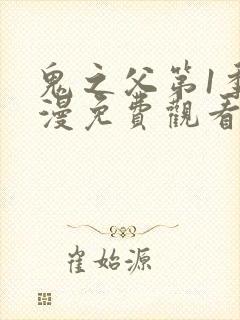 鬼之父第1季
漫免費觀看
崔始源